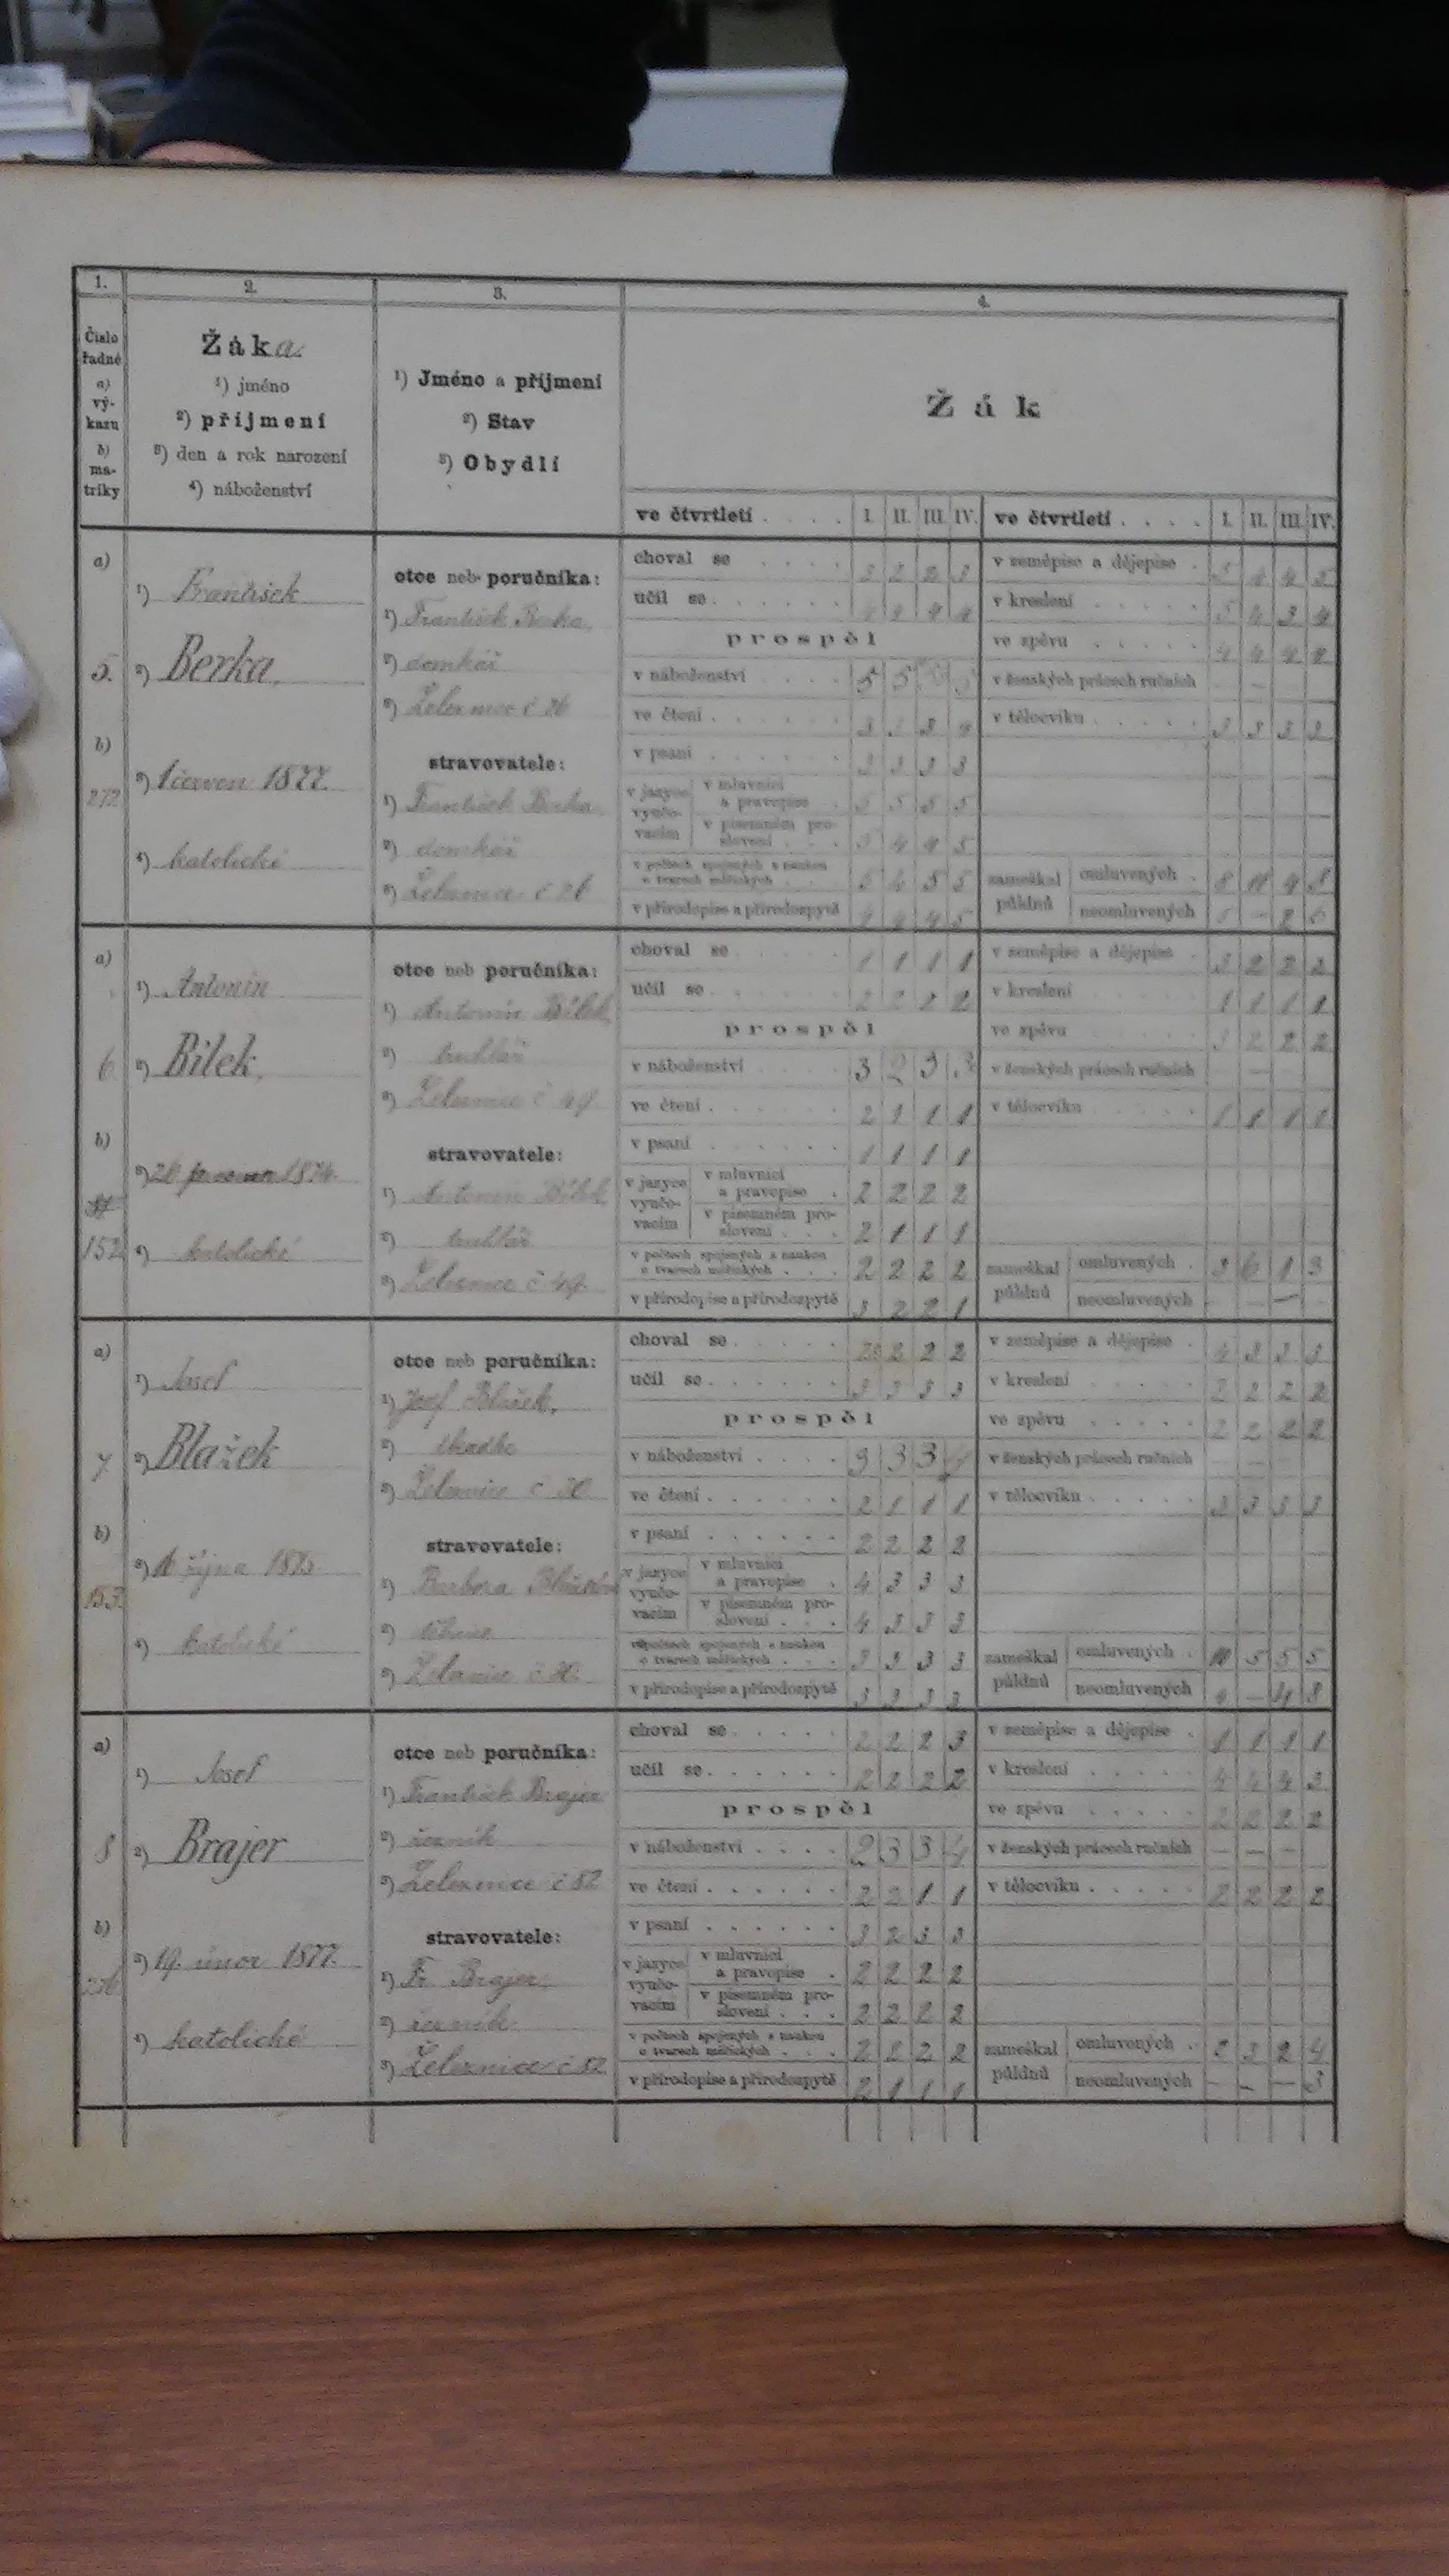 1. 2. 3. 4.
Číslo řadné
a) vý-
kazu
b) ma-
triky
Žáka.
¹) jméno
²) příjmení
³) den a rok narození
⁴) náboženství
¹) Jméno a příjmení
²) Stav
³) Obydlí
Žák
ve čtvrtletí . . . . I. II. III. IV. ve čtvrtletí . . . . I. II. III. IV.
a)
5.
b)
¹) František
²) Berka
³) červen 1877.
⁴) katolické
otce neb poručníka:
¹) František Berka
²) domkář
³) Železnice č 26
stravovatele:
¹) František Berka
²) domkář
³) Železnice č 26
choval se . . . .
učil se . . . . . .
prospěl
v náboženství . . . . 5 5
ve čtení . . . . . .
v psaní . . . . . . 3 3 3 3
v jazyce vyučo-
vacím
v mluvnici
a pravopise . 5 5 5 5
v písemném pro-
slovení . . .
v počtech spojených s naukou
o tvarech měřických . . .
v přírodopise a přírodozpytě 4 4 4 5
v zeměpise a dějepise .
v kreslení . . . . . 5 4 3 4
ve zpěvu . . . . .
v ženských pracech ručních
v tělocviku . . . . . 3 3 3 3
zameškal
půldnů
omluvených .
neomluvených
a)
6
b)
152
¹) Antonín
²) Bílek
³) 1874.
⁴) katolické
otce neb poručníka:
¹) Antonín Bílek
²) truhlář
³) Železnice č 49
stravovatele:
¹) Antonín Bílek
²) truhlář
³) Železnice č 49.
choval se . . . . 1 1 1 1
učil se . . . . . . 2 2 2 2
prospěl
v náboženství . . . . 3 2 3 3
ve čtení . . . . . . 2 1 1 1
v psaní . . . . . . 1 1 1 1
v jazyce vyučo-
vacím
v mluvnici
a pravopise . 2 2 2 2
v písemném pro-
slovení . . . 2 1 1 1
v počtech spojených s naukou
o tvarech měřických . . . 2 2 2 2
v přírodopise a přírodozpytě 3 2 2 1
v zeměpise a dějepise . 3 2 2 2
v kreslení . . . . . 1 1 1 1
ve zpěvu . . . . . 3 2 2 2
v ženských pracech ručních
v tělocviku . . . . . 1 1 1 1
zameškal
půldnů
omluvených . 3 6 1 3
neomluvených
a)
7
b)
153
¹) Josef
²) Blažek
³) října 1875
⁴) katolické
otce neb poručníka:
¹) Josef Blažek.
²)
³) Železnice č 30
stravovatele:
¹) Barbora Blažková
²)
³) Železnice č 30.
choval se . . . . 2 2 2
učil se . . . . . . 3 3 3 3
prospěl
v náboženství . . . . 3 3 3 4
ve čtení . . . . . . 2 1 1 1
v psaní . . . . . . 2 2 2 2
v jazyce vyučo-
vacím
v mluvnici
a pravopise . 4 3 3 3
v písemném pro-
slovení . . . 4 3 3 3
v počtech spojených s naukou
o tvarech měřických . . . 3 3 3 3
v přírodopise a přírodozpytě 3 3 3 3
v zeměpise a dějepise . 4 3 3 3
v kreslení . . . . . 2 2 2 2
ve zpěvu . . . . . 2 2 2 2
v ženských pracech ručních
v tělocviku . . . . . 3 3 3 3
zameškal
půldnů
omluvených . 10 5 5 5
neomluvených
a)
8
b)
¹) Josef
²) Brajer
³) 19. únor 1877.
⁴) katolické
otce neb poručníka:
¹) František Brajer
²) řezník
³) Železnice č 52
stravovatele:
¹) Fr. Brajer
²) řezník
³) Železnice č 52
choval se . . . . 2 2 2 3
učil se . . . . . . 2 2 2 2
prospěl
v náboženství . . . . 2 3 3 4
ve čtení . . . . . . 2 2 1 1
v psaní . . . . . . 3 2 3 3
v jazyce vyučo-
vacím
v mluvnici
a pravopise . 2 2 2 2
v písemném pro-
slovení . . . 2 2 2 2
v počtech spojených s naukou
o tvarech měřických . . . 2 2 2 2
v přírodopise a přírodozpytě 2 1 1 1
v zeměpise a dějepise . 1 1 1 1
v kreslení . . . . . 4 4 4 3
ve zpěvu . . . . . 2 2 2 2
v ženských pracech ručních – – –
v tělocviku . . . . . 2 2 2 2
zameškal
půldnů
omluvených . 2 3 2 4
neomluvených – – – 3